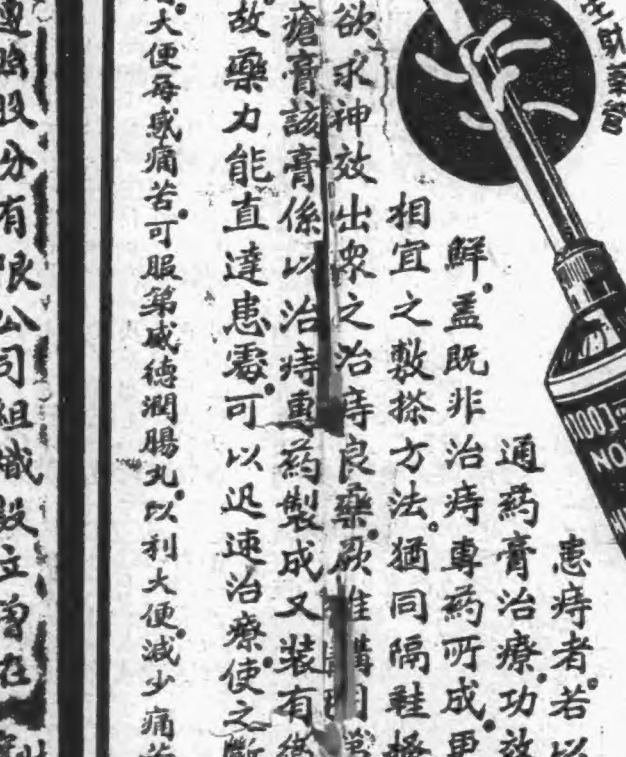 患痔者若以
通药膏治療功效
鮮盖既非治痔專药所成更
相宜之敷搽方法猶同隔鞋搔
欲求神效出衆之治痔良藥厥惟購用
瘡膏該膏係以治痔專药製成又装有
故藥力能直達患處可以迅速治療使之斷
大便每感痛苦可服第威德潤腸丸以利大便減少痛苦
股分有限公司組織設立曾在
射藥管
NO